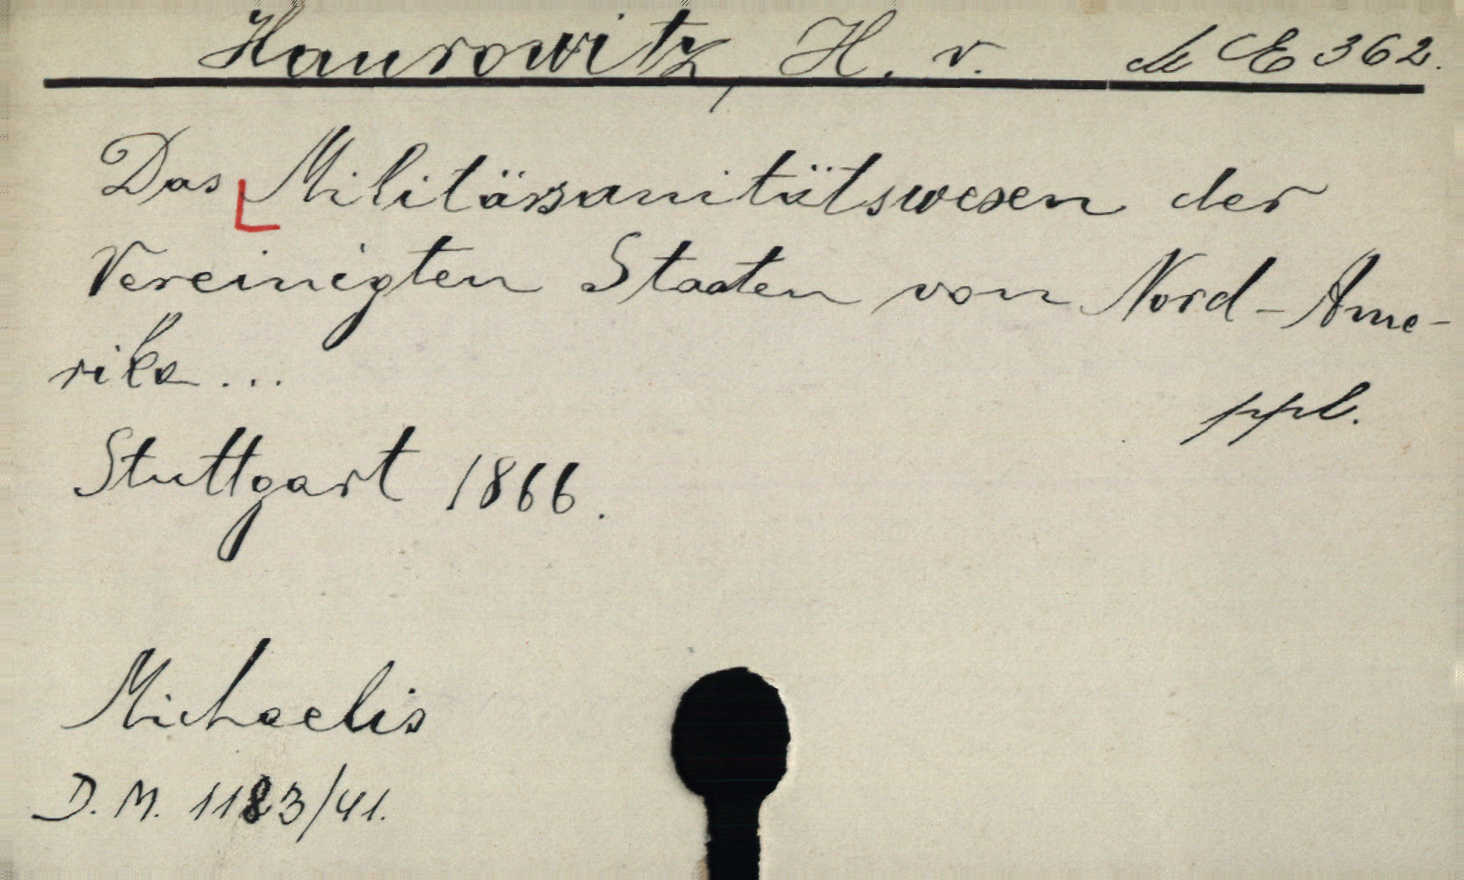 Haurowitz, H. v. M E 362.
Das Militärsanitätswesen der
Vereinigten Staaten von Nord-Ame-
rika...
ppl.
Stuttgart 1866.
Michaelis
D. M. 1183/41.